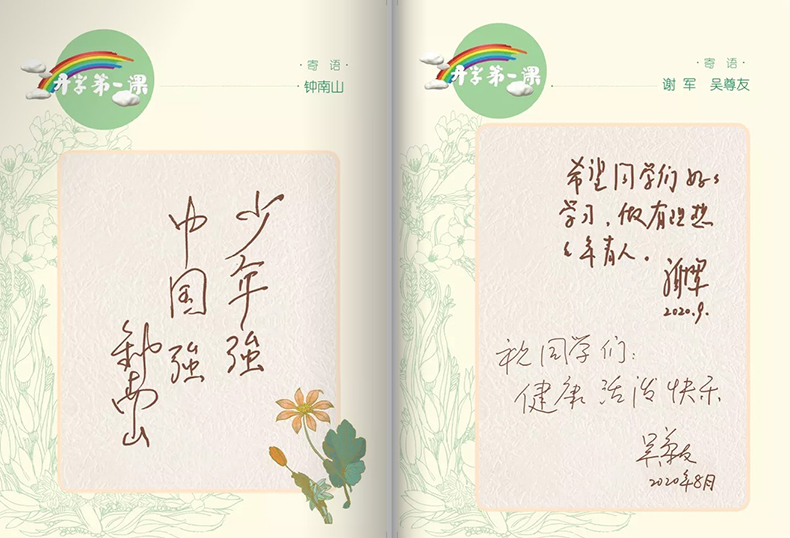 开学第一课
·寄语·
·钟南山
少年强
中国强
钟南山
开学第一课
·寄语·
谢军 吴尊友
希望同学们好好
学习，做有理想
的年青人。
谢军
2020.9.
祝同学们：
健康 活泼 快乐
吴尊友
2020年8月